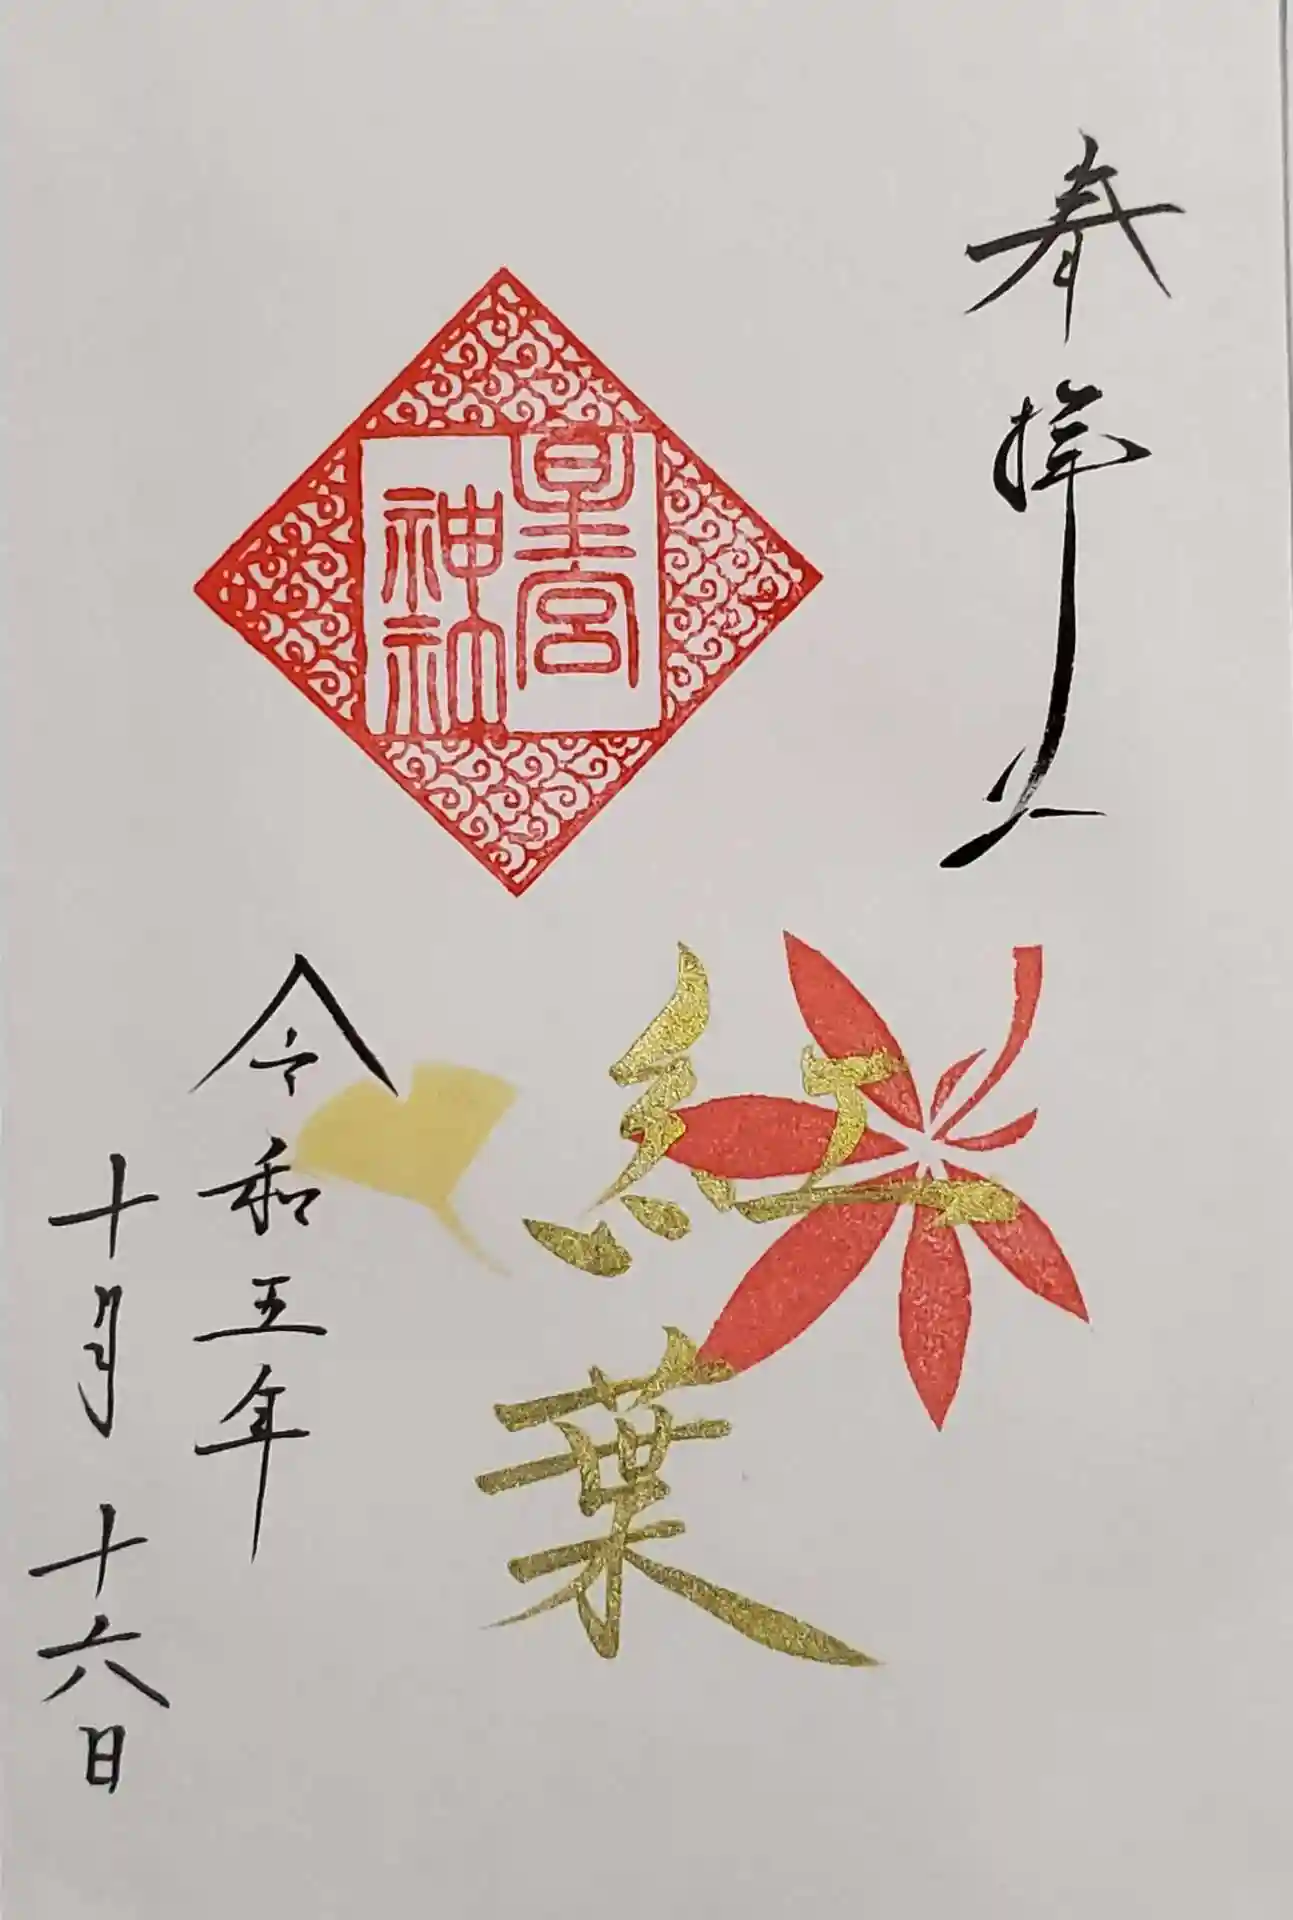 奉拝
星宮
神社
紅葉
令和五年
十月十六日